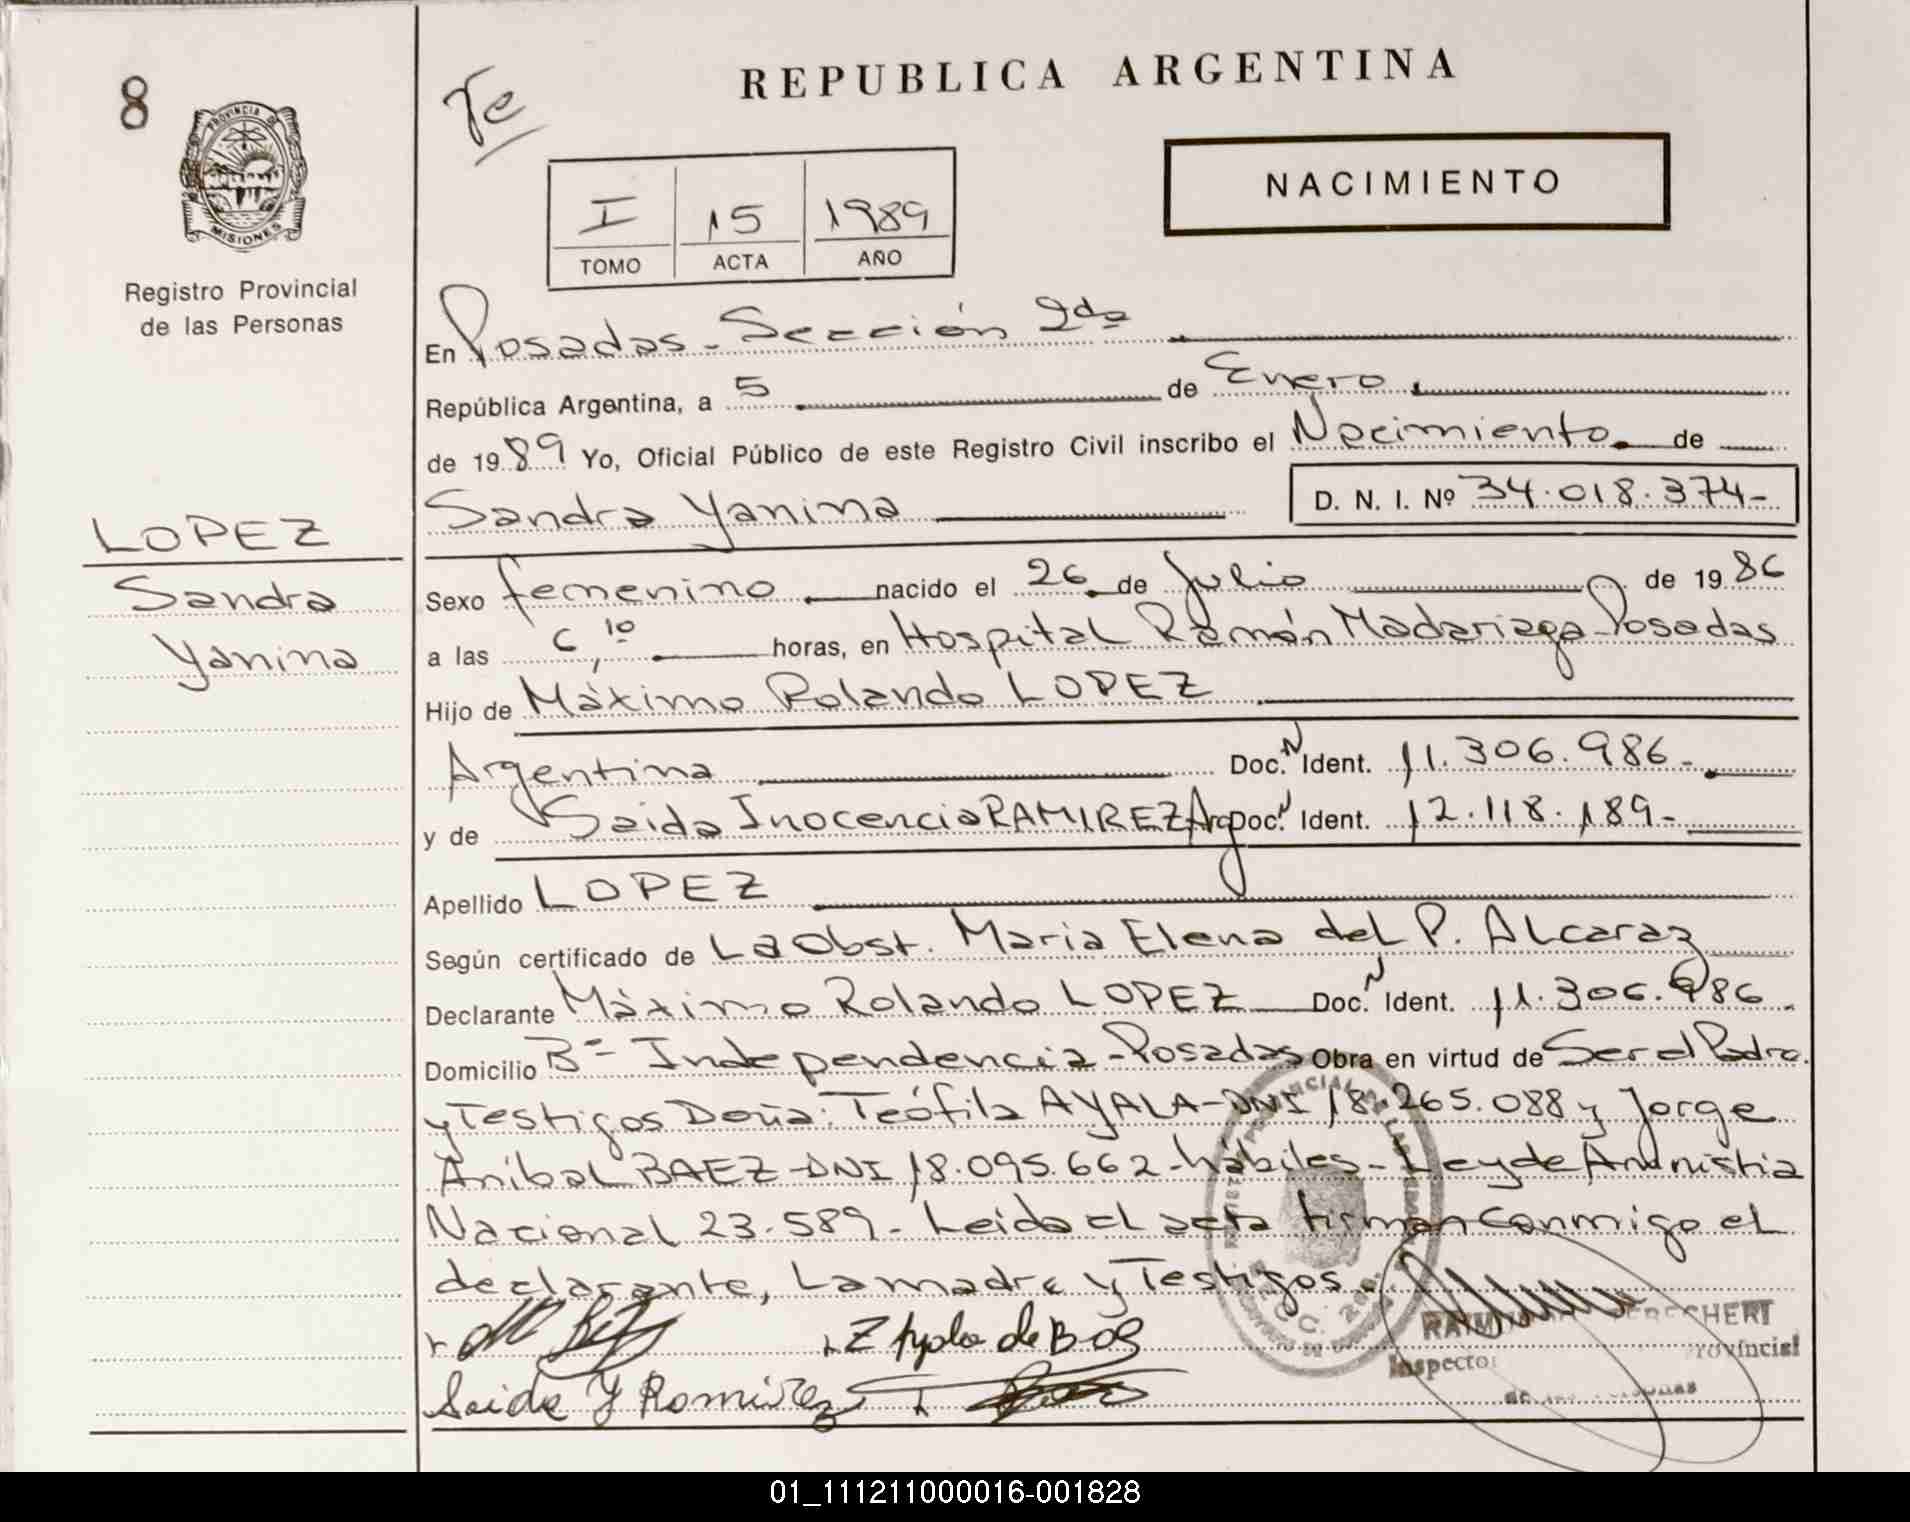 8
PROVINCIA DE
MISIONES
Registro Provincial
de las Personas
LOPEZ
Sandra
Yanina
REPUBLICA ARGENTINA
NACIMIENTO
I 15 1989
TOMO ACTA AÑO
En Posadas - Sección 2da
República Argentina, a 5 de Enero
de 1989 Yo, Oficial Público de este Registro Civil inscribo el Nacimiento de
Sandra Yanina D. N. I. Nº 34.018.374-
Sexo femenino nacido el 26 de Julio de 1986
a las 6,10 horas, en Hospital Ramón Madariaga - Posadas
Hijo de Máximo Rolando LOPEZ
Argentina Doc. N Ident. 11.306.986-
y de Saida Inocencia RAMIREZ Arg Doc. N Ident. 12.118.189-
Apellido LOPEZ
Según certificado de La Obst. Maria Elena del P. Alcaraz
Declarante Máximo Rolando LOPEZ Doc. N Ident. 11.306.986.
Domicilio Bº - Independencia - Posadas Obra en virtud de Ser el Padre.
y Testigos Doña: Teófila AYALA - DNI 18.265.088 y Jorge
Aníbal BAEZ - DNI 18.095.662 - hábiles - Ley de Amnistia
Nacional 23.589 - Leida el acta firman conmigo el
declarante, La madre y Testigos.
Saida Y Ramirez
Inspector Provincial
01_111211000016-001828